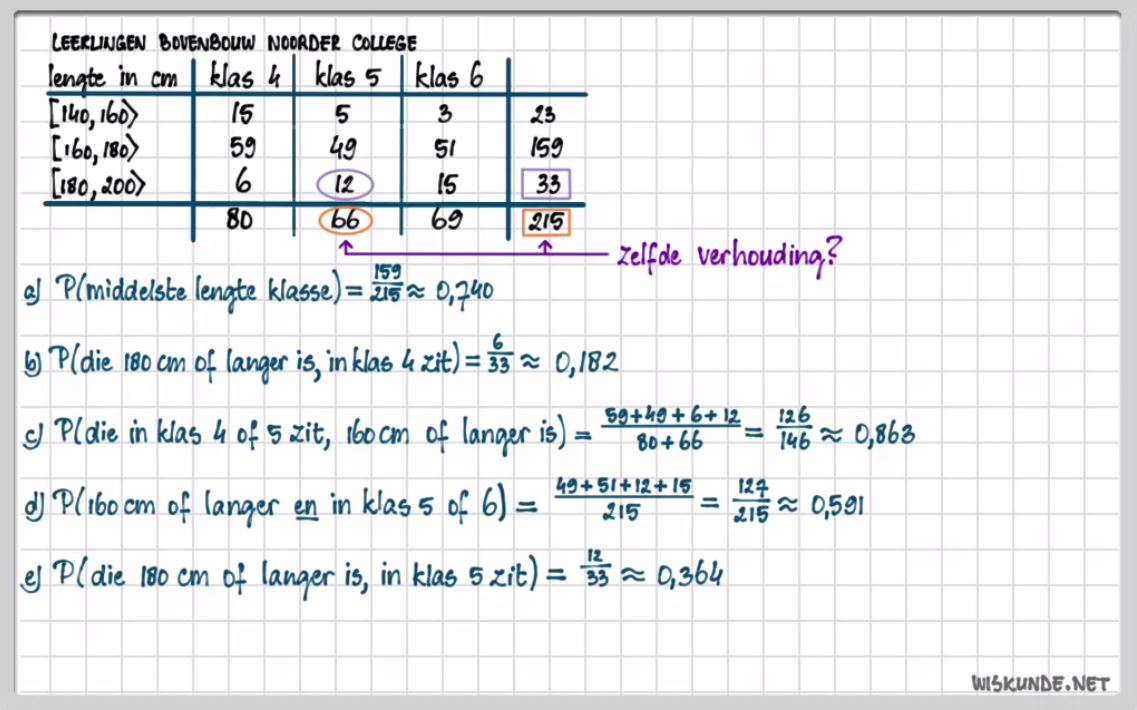 LEERLINGEN BOVENBOUW NOORDER COLLEGE
lengte in cm klas 4 klas 5 klas 6
[140, 160⟩ 15 5 3 23
[160, 180⟩ 59 49 51 159
[180, 200⟩ 6 12 15 33
80 66 69 215
zelfde verhouding?
a) P(middelste lengte klasse) = 159/215 ≈ 0,740
b) P(die 180 cm of langer is, in klas 4 zit) = 6/33 ≈ 0,182
c) P(die in klas 4 of 5 zit, 160 cm of langer is) = (59+49+6+12)/(80+66) = 126/146 ≈ 0,863
d) P(160 cm of langer en in klas 5 of 6) = (49+51+12+15)/215 = 127/215 ≈ 0,591
e) P(die 180 cm of langer is, in klas 5 zit) = 12/33 ≈ 0,364
WISKUNDE.NET